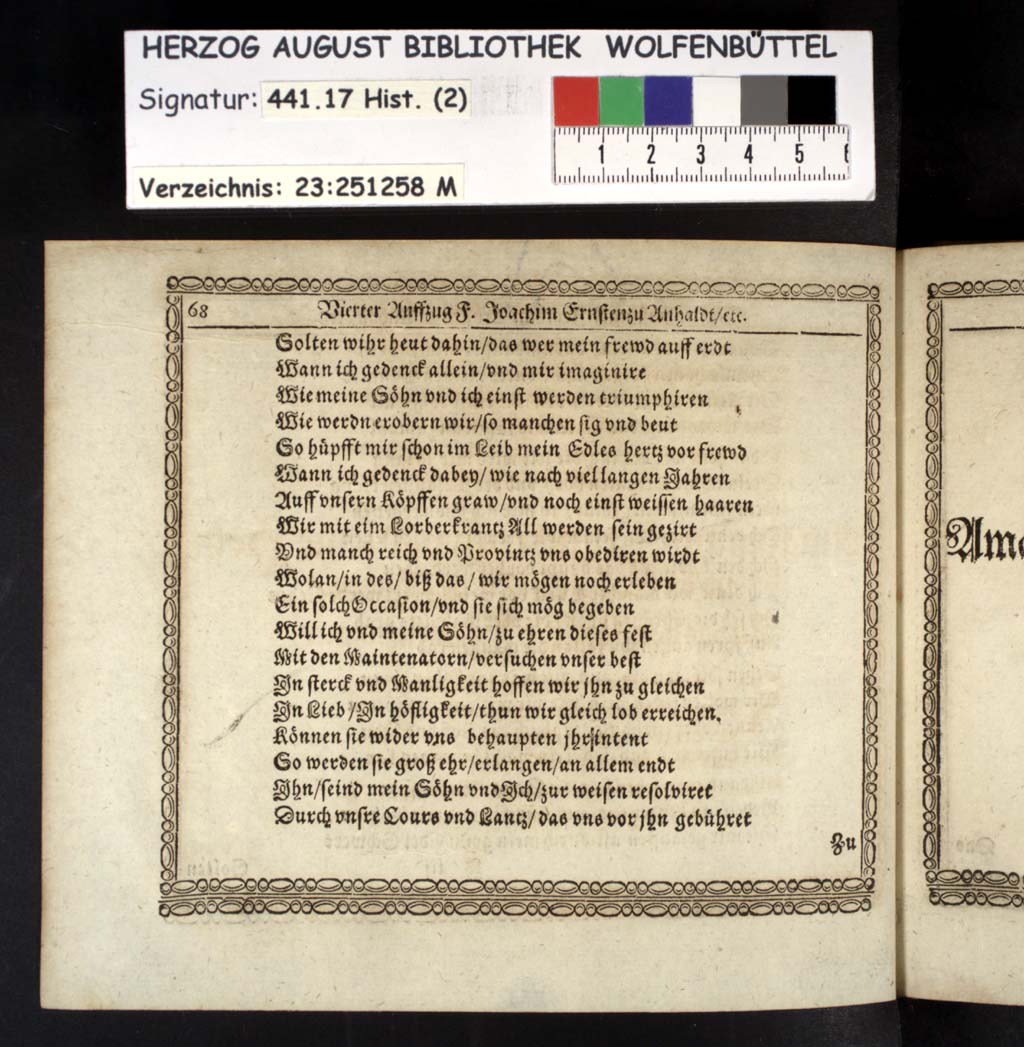 HERZOG AUGUST BIBLIOTHEK WOLFENBÜTTEL
Signatur: 441.17 Hist. (2)
1 2 3 4 5 6
Verzeichnis: 23:251258 M
68 Vierter Auffzug F. Joachim Ernsten zu Anhaldt/etc.
Solten wihr heut dahin/das wer mein frewd auff erdt
Wann ich gedenck allein/vnd mir imaginire
Wie meine Söhn vnd ich einst werden triumphiren
Wie werdn erobern wir/so manchen sig vnd beut
So hüpfft mir schon im Leib mein Edles hertz vor frewd
Wann ich gedenck dabey/wie nach viel langen Jahren
Auff vnsern Köpffen graw/vnd noch einst weissen haaren
Wir mit eim Lorberkrantz All werden sein gezirt
Vnd manch reich vnd Provintz vns obediren wirdt
Wolan/in des/biß das/wir mögen noch erleben
Ein solch Occasion/vnd sie sich mög begeben
Will ich vnd meine Söhn/zu ehren dieses fest
Mit den Maintenatorn/versuchen vnser best
In sterck vnd Manligkeit hoffen wir jhn zu gleichen
In Lieb/In höfligkeit/thun wir gleich lob erreichen.
Können sie wider vns behaupten jhr intent
So werden sie groß ehr/erlangen/an allem endt
Ihn/seind mein Söhn vnd Ich/zur weisen resolviret
Durch vnsre Cours vnd Lantz/das vns vor jhn gebühret
Zu
Ama